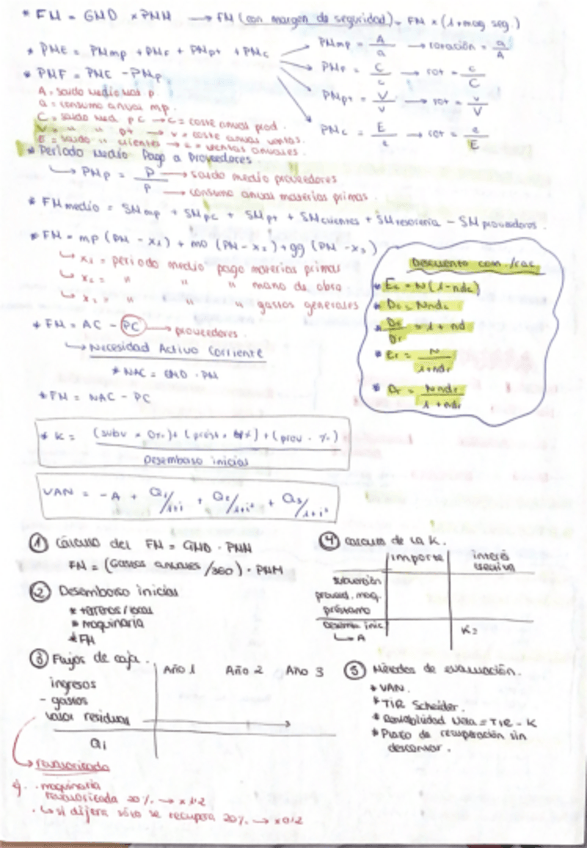 * FM = GMD x PMM → FM (con margen de seguridad) = FM x (1+mag seg.)
* PME = PMmp + PMF + PMpt + PMc
PMmp = A/a → rotación = a/A
PMF = C/c → rot = c/C
PMpt = V/v → rot = v/V
PMc = E/e → rot = e/E
* PMF = PME - PMp
A = saldo medio mat p.
a = consumo anual mp.
C = saldo med. pc → c = coste anual prod.
V = " " pt → v = coste anual ventas.
E = saldo " clientes → e = ventas anuales.
* Periodo Medio Pago a Proveedores
→ PMp = P/p → saldo medio proveedores
→ consumo anual materias primas.
* FM medio = SMmp + SMpc + SMpt + SMclientes + SMtesorería - SMproveedores.
* FM = mp (PM - x₁) + mo (PM - x₂) + gg (PM - x₃)
→ x₁ = periodo medio pago materias primas
→ x₂ = " " " mano de obra
→ x₃ = " " " gastos generales
Descuento com/rac
* Ec = N(1-ndc)
* Dc = Nndc
* Dc/Dr = 1 + nd
* Er = N/1+ndr
* Dr = Nndr/1+ndr
* FM = AC - PC → proveedores.
→ Necesidad Activo Corriente
* NAC = GMD · PM
* FM = NAC - PC
* K = (subv x 0%) + (prést x %) + (prov · %)
Desembolso inicial
VAN = -A + Q₁/1+i + Q₂/1+i² + Q₃/1+i³
① Cálculo del FM = GMD · PMM
FM = (Gastos anuales/360) · PMM
② Desembolso inicial
* terrenos / local
* maquinaria
* FM
③ Flujos de caja.
Año 1 Año 2 Año 3
ingresos
- gastos
valor residual
Qi
→ revalorizado
ej. · maquinaria revalorizada 20% → x 1'2
· si dijera sólo se recupera 20% → x 0'2
④ Cálculo de la K.
importe interés
subvención
proveed. maq.
préstamo
Desemb. inic K =
→ A
⑤ Métodos de evaluación.
* VAN.
* TIR Schneider.
* Rentabilidad Neta = TIR - K
* Plazo de recuperación sin
descontar.